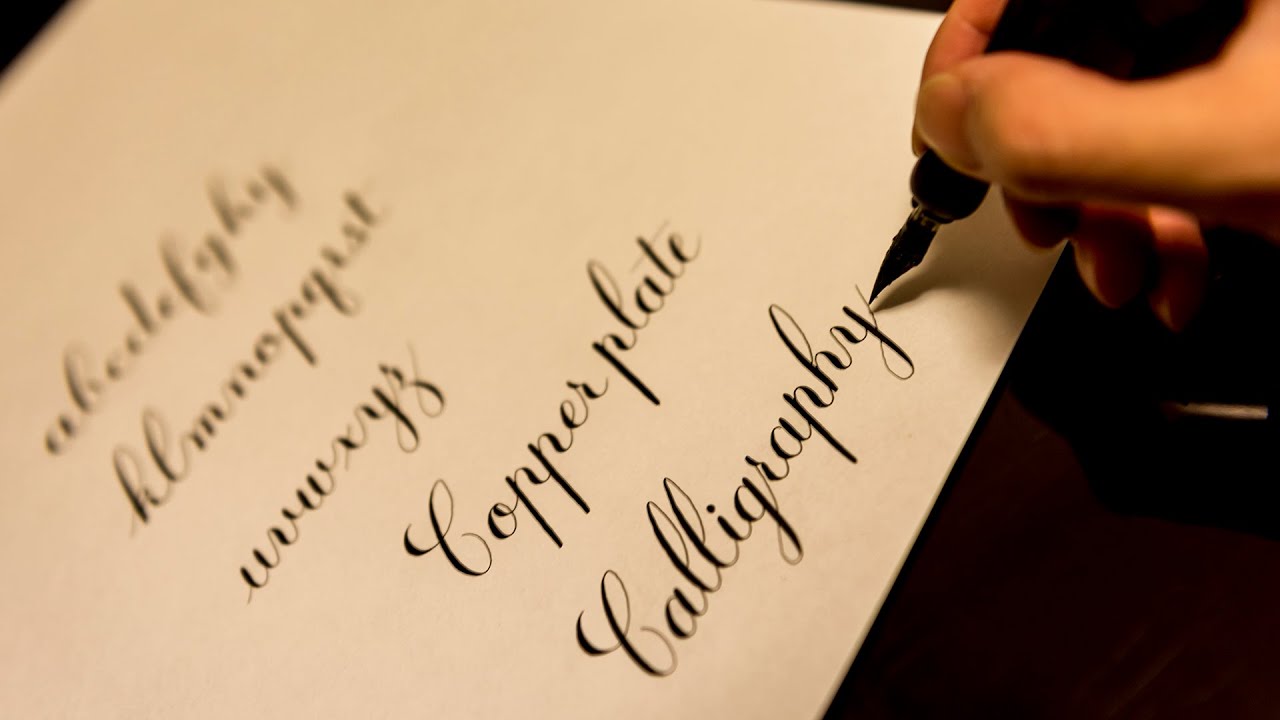 abcdefghy
klmnopqrst
uvwxyz
Copper plate
Calligraphy